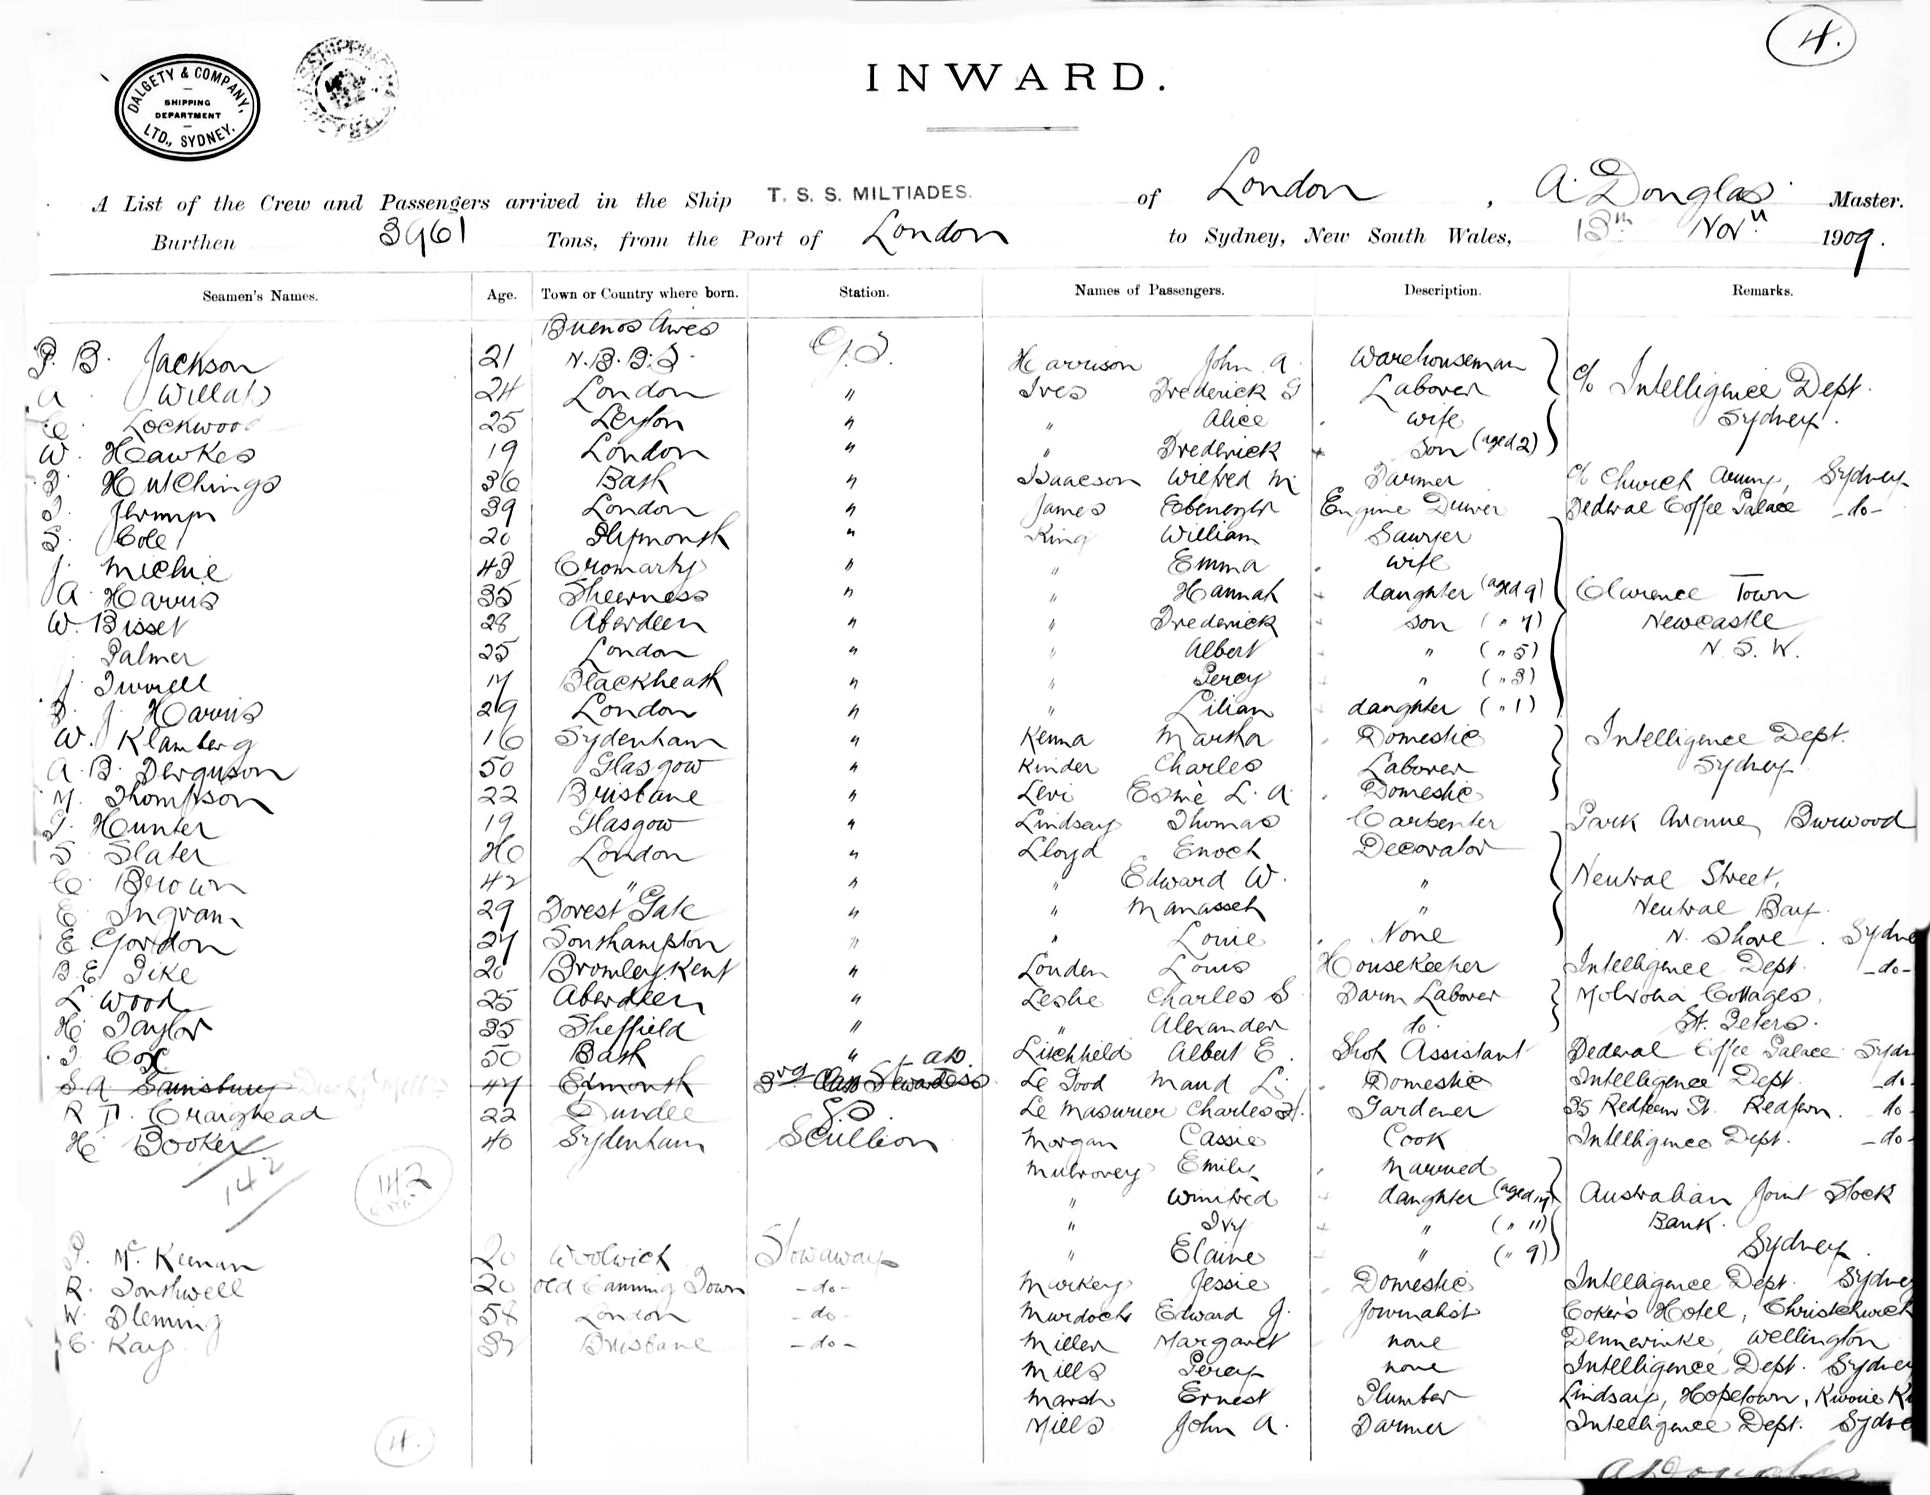 4.
DALGETY & COMPANY,
SHIPPING
DEPARTMENT
LTD., SYDNEY.
INWARD.
A List of the Crew and Passengers arrived in the Ship T. S. S. MILTIADES. of London, A. Douglas Master.
Burthen 3961 Tons, from the Port of London to Sydney, New South Wales, 13th Nov 1909.
Seamen's Names. Age. Town or Country where born. Station. Names of Passengers. Description. Remarks.
Buenos Aires
P. B. Jackson 21 G.S. Harrison John A. Warehouseman
A. 24 London " Ives Frederick G Laborer c/o Intelligence Dept.
C. Lockwood 25 Leyton " " Alice wife Sydney.
W. Hawkes 19 London " " Frederick son (aged 2)
Hutchings 36 Bath " Isaacson Wilfred M Farmer c/o Church Army, Sydney
39 London " James Ebenezer Engine Driver Federal Coffee Palace -do-
S. Cole 20 Plymouth " King William Sawyer
J. Michie 43 Cromarty " " Emma wife
A. Harris 35 Sheerness " " Hannah daughter (aged 9) Clarence Town
W. Bisset 28 Aberdeen " " Frederick son ( " 7) Newcastle
Palmer 25 London " " Albert " ( " 5) N. S. W.
J. 17 Blackheath " " Percy " ( " 3)
J. Harris 29 London " " Lilian daughter ( " 1)
W. Klamberg 16 Sydenham " Kenna Martha Domestic Intelligence Dept.
A. B. Ferguson 50 Glasgow " Kinder Charles Laborer Sydney
Thompson 22 Brisbane " Levi Esmè L. A. Domestic
Hunter 19 Glasgow " Lindsay Thomas Carpenter Park Avenue, Burwood
S. Slater 20 London " Lloyd Enoch Decorator
C. Brown 42 " " " Edward W. " Neutral Street,
E. Ingram 29 Forest Gate " " Manasseh " Neutral Bay.
E. Gordon 27 Southampton " " Louie None N. Shore. Sydne
B. E. Pike 20 Bromley Kent " Louden Louis Housekeeper Intelligence Dept. -do-
L. Wood 25 Aberdeen " Leslie Charles S Farm Laborer Cottages,
H. Taylor 35 Sheffield " " Alexander do. St. Peters.
Cox 50 Bath " Litchfield Albert E. Shop Assistant Federal Coffee Palace Sydn
S. A. Sainsbury 47 Exmouth 3rd Class Stewardess Le Good Maud L. Domestic Intelligence Dept. -do-
R. Craighead 22 Dundee Le Masurier Charles Gardener 35 Redfern St. Redfern. -do-
H. Booker 40 Sydenham Scullion Morgan Cassie Cook Intelligence Dept. -do-
142 142 Mulroney Emily Married
" Winifred daughter (aged 14) Australian Joint Stock
" Ivy " ( " 11) Bank.
P. McKeenan 20 Woolwich Stowaway " Elaine " ( " 9) Sydney.
R. Southwell 20 Old Canning Town -do- Markey Jessie Domestic Intelligence Dept. Sydney
W. Fleming 58 London -do- Murdoch Edward J. Journalist Coker's Hotel, Christchurch
C. Kay Brisbane -do- Miller Margaret none Wellington
Mills Percy none Intelligence Dept. Sydney
Marsh Ernest Plumber Lindsay, Hopetown,
Mills John A. Farmer Intelligence Dept. Sydne
4.
A Douglas